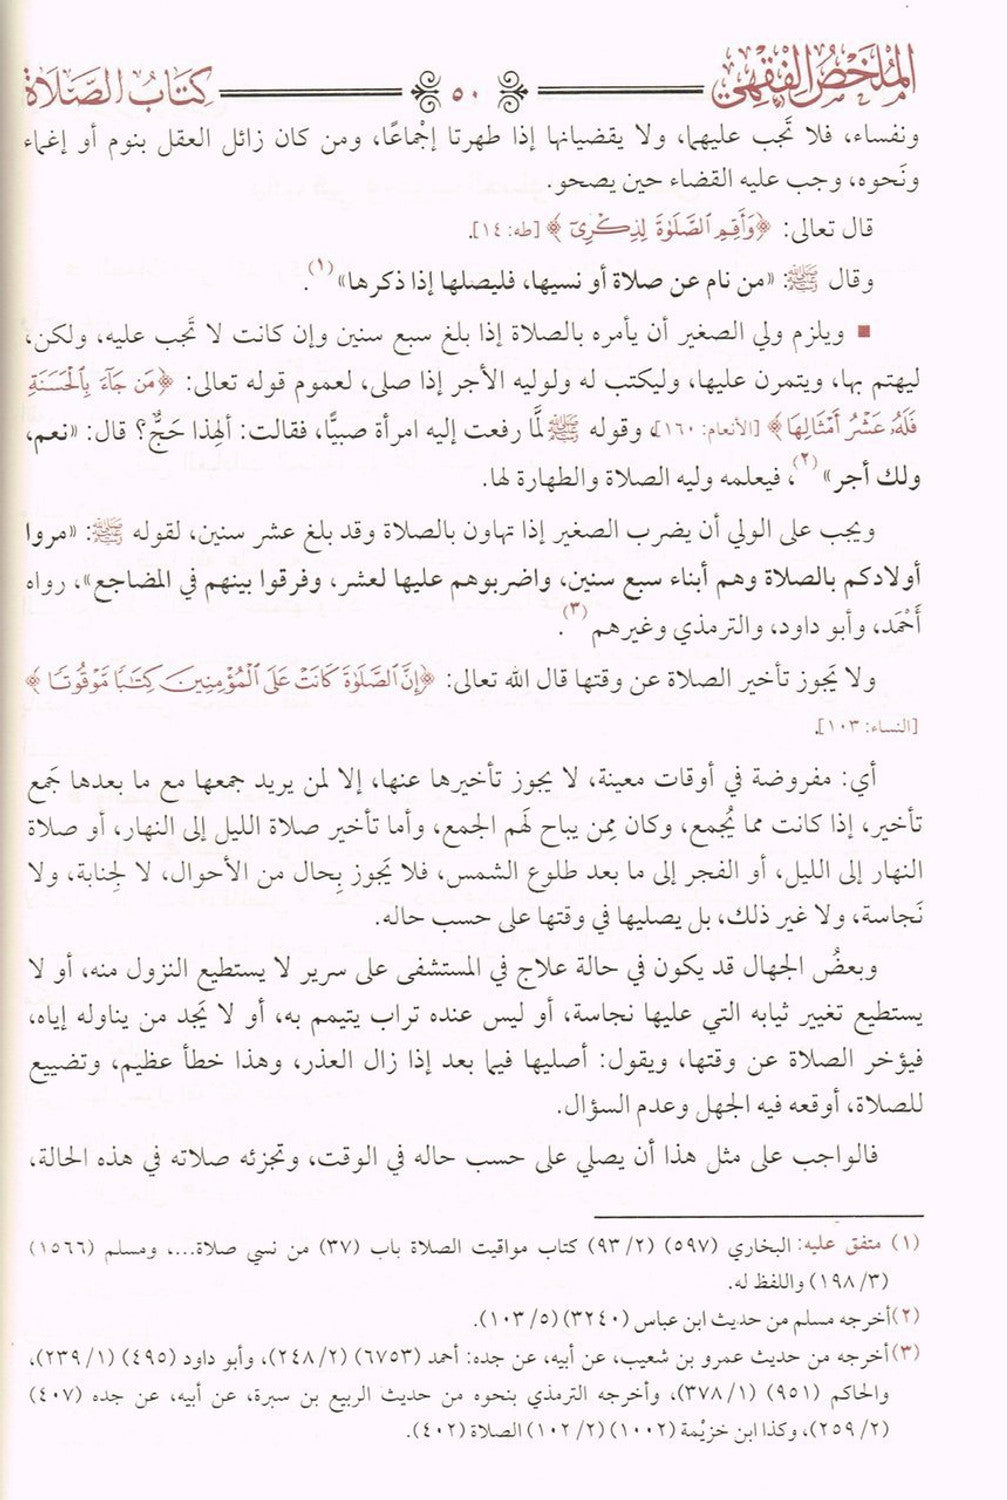 الملخص الفقهي ٥٠ كتاب الصلاة
ونفساء، فلا تَجب عليهما، ولا يقضيانها إذا طهرتا إجْماعًا، ومن كان زائل العقل بنوم أو إغماء
ونَحوه، وجب عليه القضاء حين يصحو.
قال تعالى: ﴿وَأَقِمِ ٱلصَّلَوٰةَ لِذِكْرِىٓ ﴾ [طه: ١٤].
وقال ﷺ: «من نام عن صلاة أو نسيها، فليصلها إذا ذكرها»(١).
■ ويلزم ولي الصغير أن يأمره بالصلاة إذا بلغ سبع سنين وإن كانت لا تَجب عليه، ولكن،
ليهتم بها، ويتمرن عليها، وليكتب له ولوليه الأجر إذا صلى، لعموم قوله تعالى: ﴿مَن جَآءَ بِٱلْحَسَنَةِ
فَلَهُۥ عَشْرُ أَمْثَالِهَا﴾ [الأنعام: ١٦٠]، وقوله ﷺ لَمَّا رفعت إليه امرأة صبيًّا، فقالت: ألهذا حَجٌّ؟ قال: «نعم،
ولك أجر»(٢)، فيعلمه وليه الصلاة والطهارة لها.
ويجب على الولي أن يضرب الصغير إذا تهاون بالصلاة وقد بلغ عشر سنين، لقوله ﷺ: «مروا
أولادكم بالصلاة وهم أبناء سبع سنين، واضربوهم عليها لعشر، وفرقوا بينهم في المضاجع»، رواه
أَحْمَد، وأبو داود، والترمذي وغيرهم(٣).
ولا يَجوز تأخير الصلاة عن وقتها قال الله تعالى: ﴿إِنَّ ٱلصَّلَوٰةَ كَانَتْ عَلَى ٱلْمُؤْمِنِينَ كِتَٰبًا مَّوْقُوتًا ﴾
[النساء: ١٠٣].
أي: مفروضة في أوقات معينة، لا يجوز تأخيرها عنها، إلا لمن يريد جمعها مع ما بعدها جَمع
تأخير، إذا كانت مما تُجمع، وكان مِمن يباح لَهم الجمع، وأما تأخير صلاة الليل إلى النهار، أو صلاة
النهار إلى الليل، أو الفجر إلى ما بعد طلوع الشمس، فلا يَجوز بِحال من الأحوال، لا لِجنابة، ولا
نَجاسة، ولا غير ذلك، بل يصليها في وقتها على حسب حاله.
وبعضُ الجهال قد يكون في حالة علاج في المستشفى على سرير لا يستطيع النزول منه، أو لا
يستطيع تغيير ثيابه التي عليها نجاسة، أو ليس عنده تراب يتيمم به، أو لا يَجد من يناوله إياه،
فيؤخر الصلاة عن وقتها، ويقول: أصليها فيما بعد إذا زال العذر، وهذا خطأ عظيم، وتضييع
للصلاة، أوقعه فيه الجهل وعدم السؤال.
فالواجب على مثل هذا أن يصلي على حسب حاله في الوقت، وتجزئه صلاته في هذه الحالة،
(١) متفق عليه: البخاري (٥٩٧) (٢/ ٩٣) كتاب مواقيت الصلاة باب (٣٧) من نسي صلاة...، ومسلم (١٥٦٦)
(٣/ ١٩٨) واللفظ له.
(٢) أخرجه مسلم من حديث ابن عباس (٣٢٤٠) (٥/ ١٠٣).
(٣) أخرجه من حديث عمرو بن شعيب، عن أبيه، عن جده: أحمد (٦٧٥٣) (٢/ ٢٤٨)، وأبو داود (٤٩٥) (١/ ٢٣٩)،
والحاكم (٩٥١) (١/ ٣٧٨)، وأخرجه الترمذي بنحوه من حديث الربيع بن سبرة، عن أبيه، عن جده (٤٠٧)
(٢/ ٢٥٩)، وكذا ابن خزيْمة (١٠٠٢) (٢/ ١٠٢) الصلاة (٤٠٢).